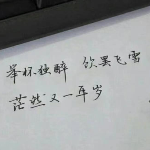 举杯独醉 饮罢飞雪
茫然又一年岁